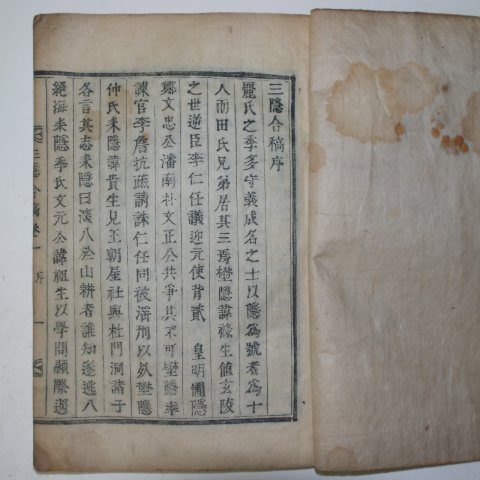 三隱合稿序
麗氏之季多守義成名之士以隱爲號者爲十
人而田氏兄弟居其三焉壄隱諱祿生値玄陵
之世逆臣李仁任議迎元使背貳 皇明圃隱
鄭文忠公潘南朴文正公共爭其不可壄隱率
諫官李詹抗疏請誅仁任同被濟刑以夙壄隱
仲氏耒隱諱貴生見王朝屋社與杜門洞諸子
各言其志耒隱曰滾入於山耕者誰知遂逃入
絶海耒隱季氏文元公諱祖生以學問顯際遇
三隱合稿卷一 序 一